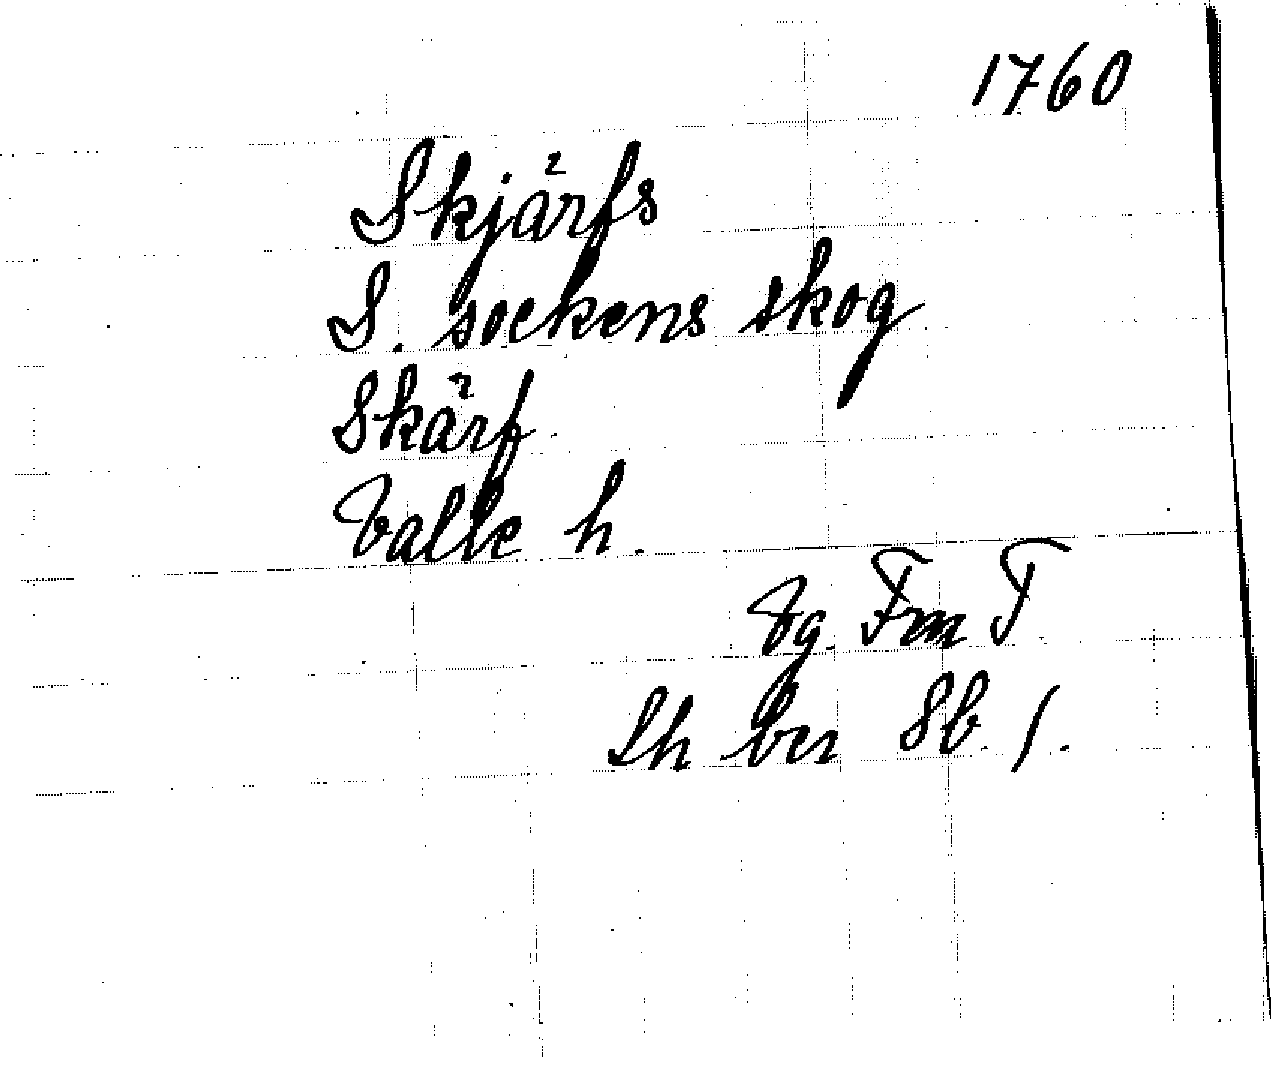 1760
Skjärfs
S. sockens skog
Skärf
Valle h.
Vg. Fm T
Lh ber 8b. /.